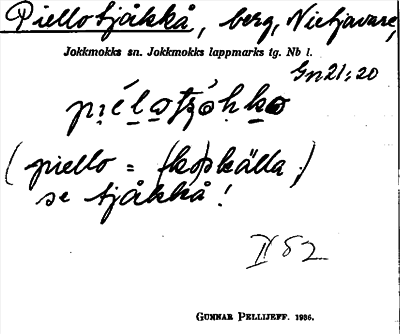 Piellotjåkkå, berg, Nietjavare,
Jokkmokks sn. Jokkmokks lappmarks tg. Nb l.
Gn21:20
(piello = (ko)skälla,)
se tjåkkå!
IV 82
GUNNAR PELLIJEFF. 1936.